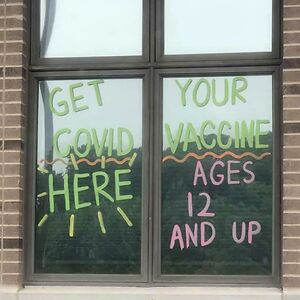 GET YOUR
COVID VACCINE
HERE AGES
12
AND UP